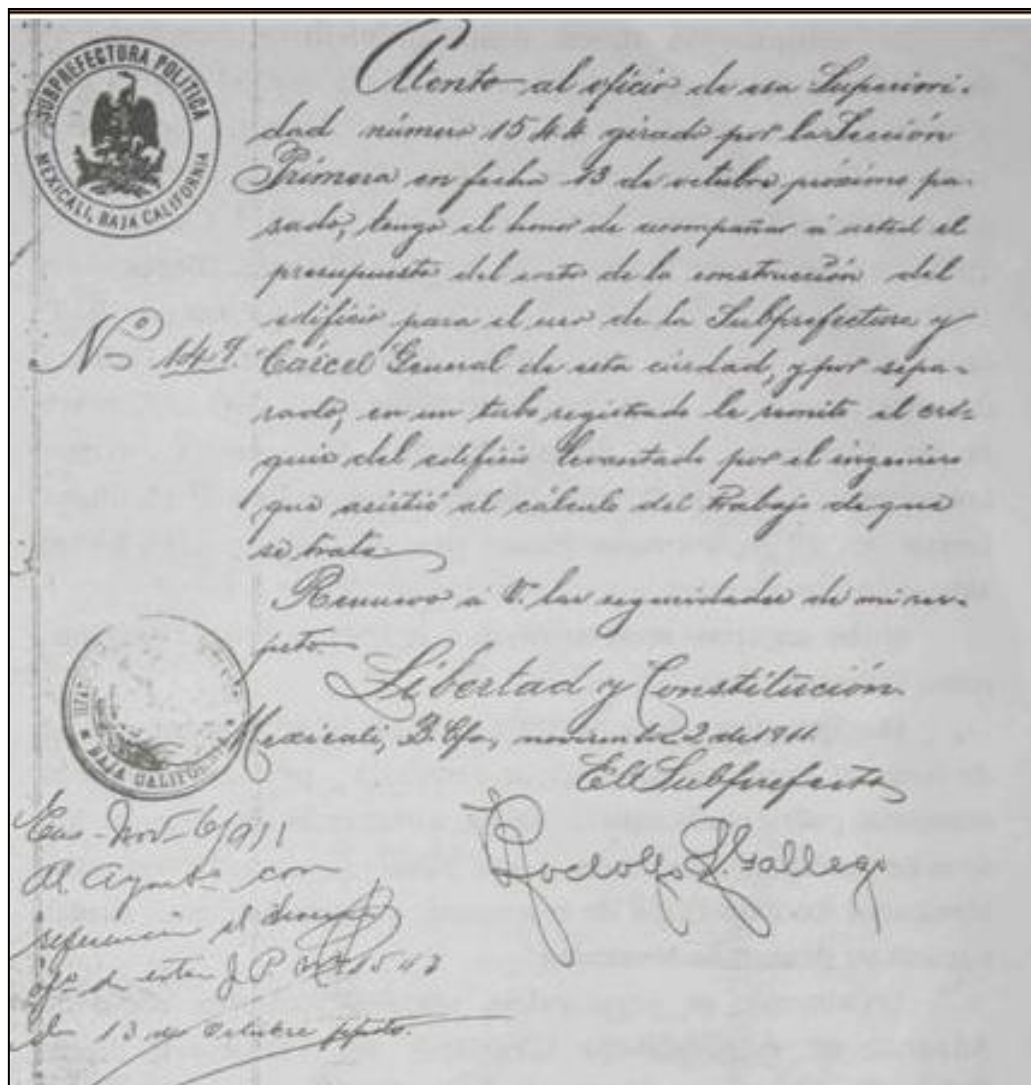 SUBPREFECTURA POLÍTICA
MEXICALI, BAJA CALIFORNIA
Atento al oficio de esa Superiori-
dad número 1544 girado por la Sección
Primera en fecha 13 de octubre próximo pa-
sado, tengo el honor de acompañar á usted el
presupuesto del costo de la construcción del
edificio para el uso de la Subprefectura y
Nº 149. Cárcel General de esta ciudad, y por sepa-
rado, en un tubo registrado le remito el cró-
quis del edificio levantado por el ingeniero
que asistió al cálculo del trabajo de que
se trata.
Renuevo á V. las seguridades de mi res-
peto.
Libertad y Constitución.
Mexicali, B. Cfa, noviembre 2 de 1911.
El Subprefecto
BAJA CALIFORNIA
Rodolfo L. Gallego
Ens. Nov 6/911
Al Aynto con
referencia al
ofº de esta J. P. 1543
de 13 de Octubre ppdo.